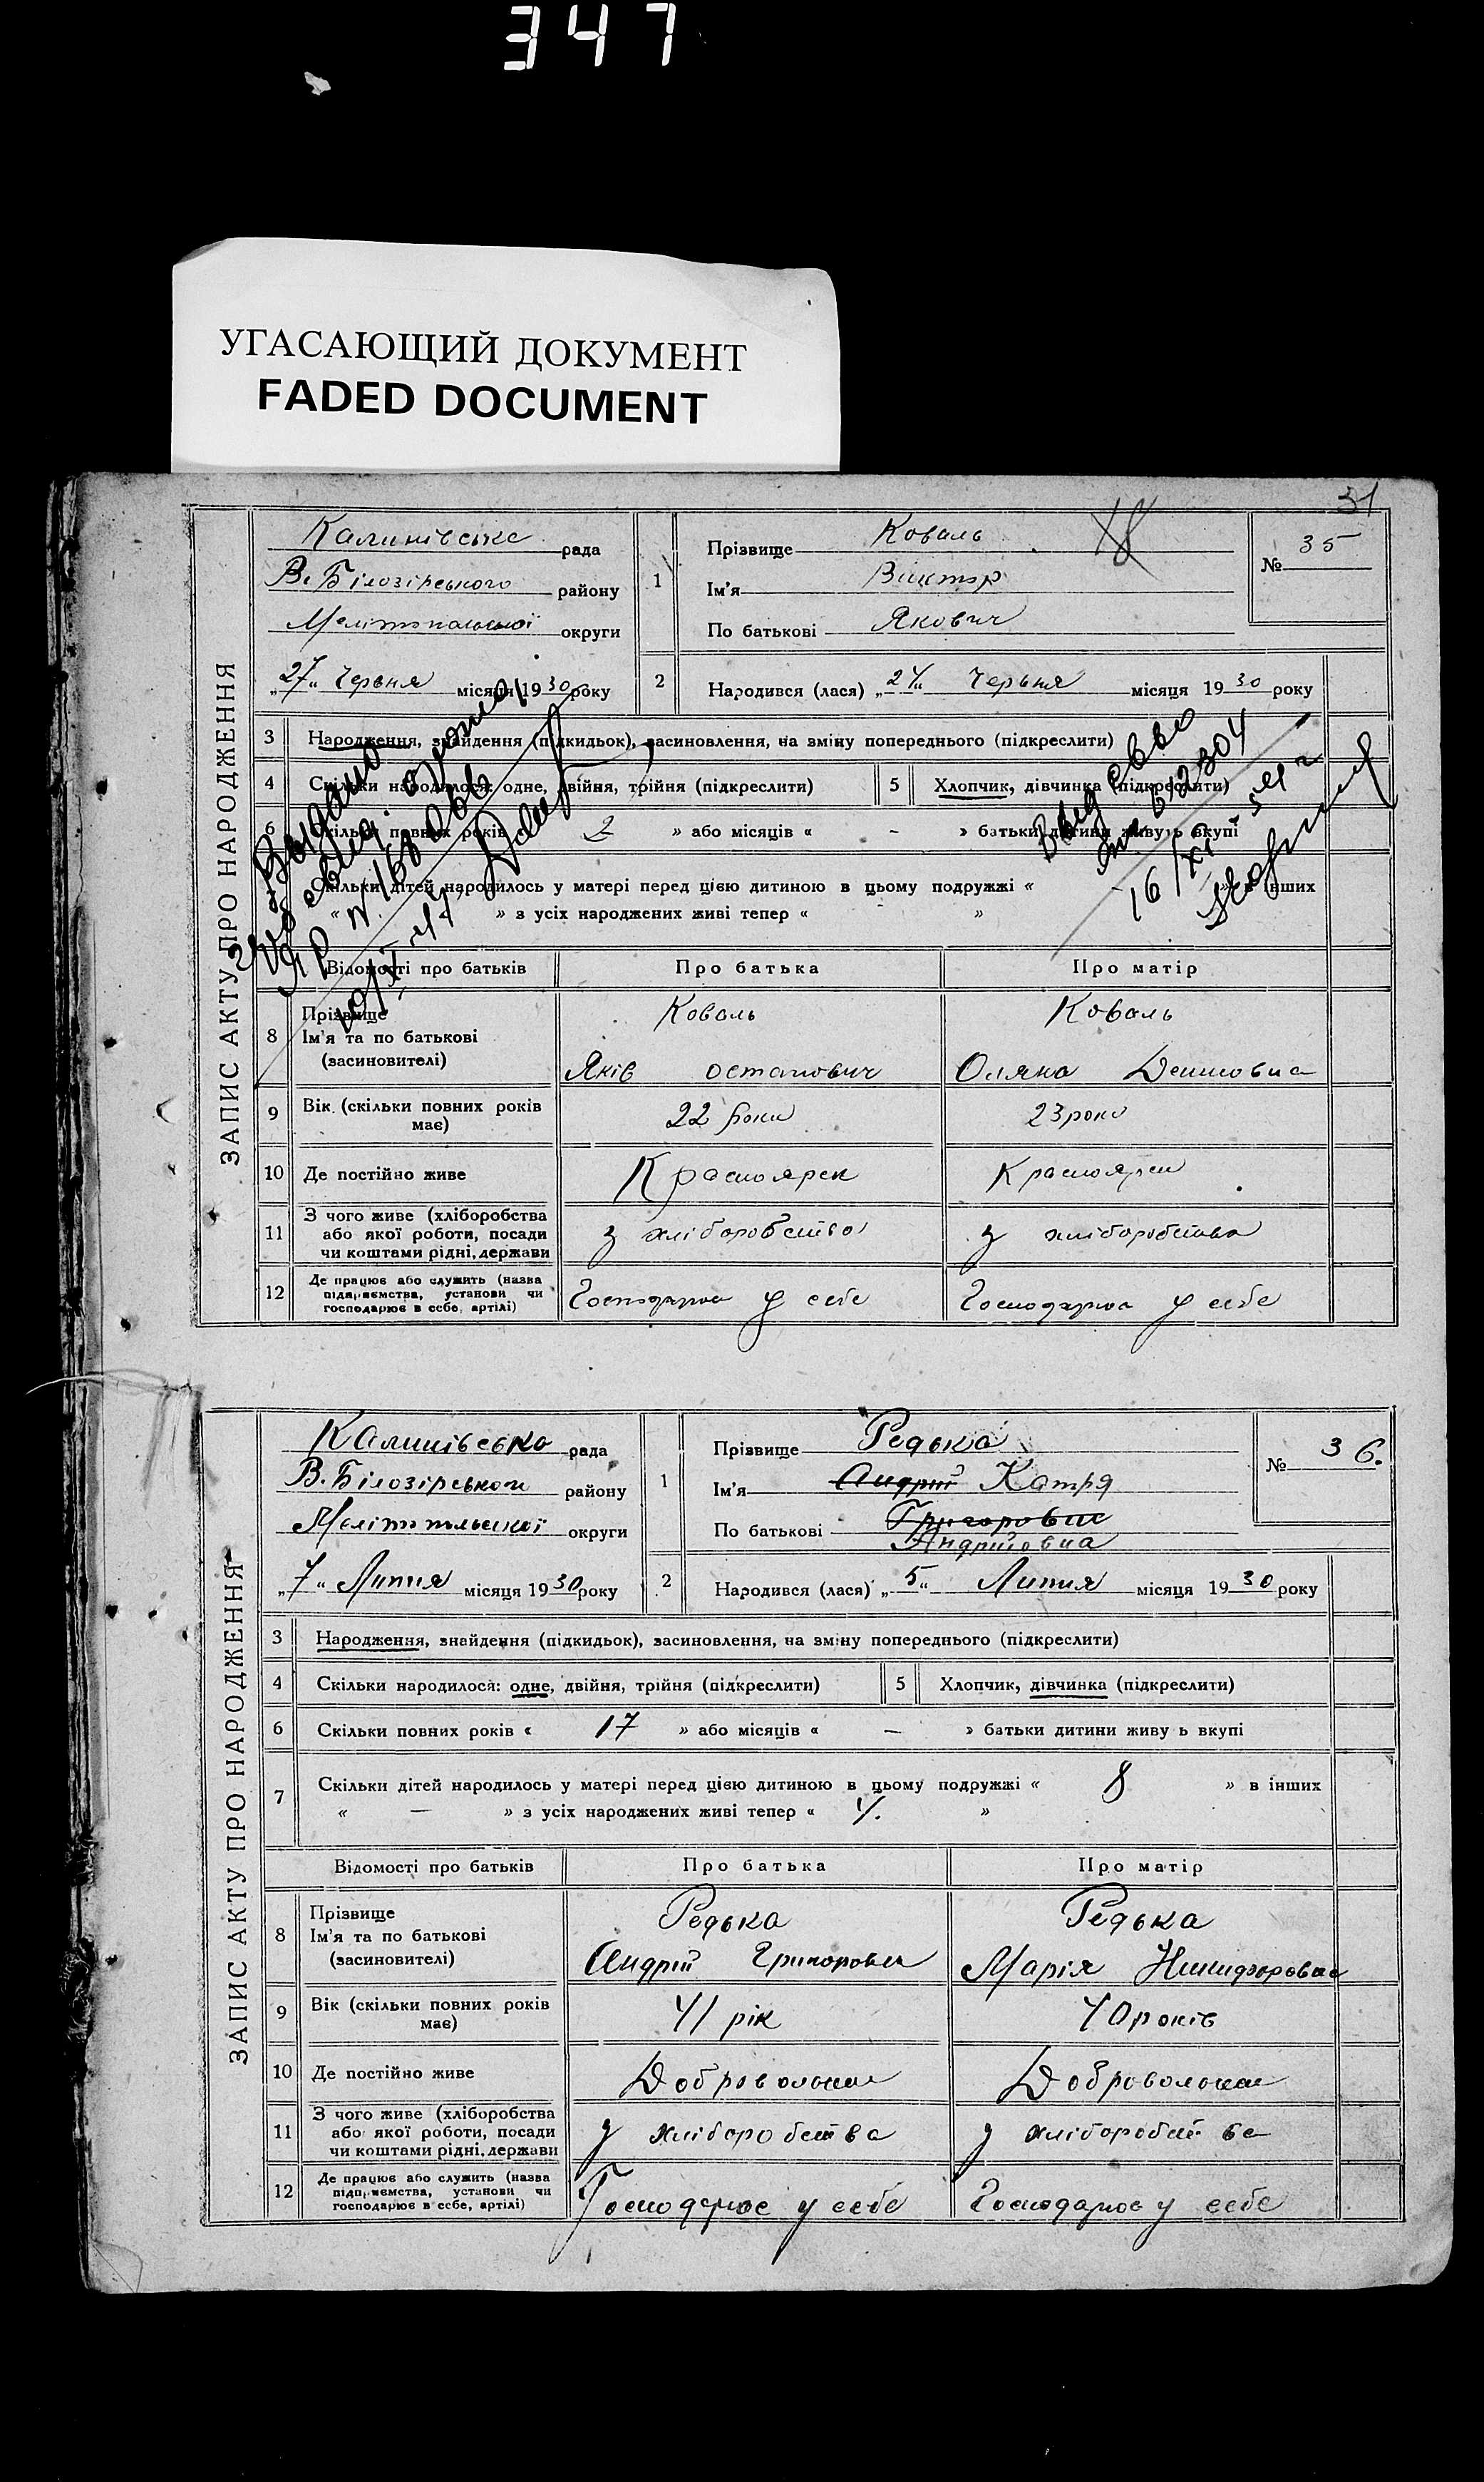 347
УГАСАЮЩИЙ ДОКУМЕНТ
FADED DOCUMENT
31
ЗАПИС АКТУ ПРО НАРОДЖЕННЯ
Калинівська рада
В. Білозірського району
Мелітопольської округи
„27“ Червня місяця 1930 року
1 Прізвище Коваль
Ім'я Виктор
По батькові Якович
№ 35
2 Народився (лася) „24“ Червня місяця 1930 року
3 Народження, знайдення (підкидьок), засиновлення, на зміну попереднього (підкреслити)
4 Скільки народилося: одне, двійня, трійня (підкреслити) 5 Хлопчик, дівчинка (підкреслити)
6 Скільки повних років 2 » або місяців « - » батьки дитини живуть вкупі
Скільки дітей народилось у матері перед цією дитиною в цьому подружжі « - » в інших
« » з усіх народжених живі тепер « »
Видано
16/XI 54 г
Відомості про батьків Про батька Про матір
8 Прізвище
Ім'я та по батькові
(засиновителі)
Коваль Коваль
Яків Остапович Оляна
9 Вік (скільки повних років має) 22 роки 23 роки
10 Де постійно живе Красноярск Красноярск
11 З чого живе (хліборобства
або якої роботи, посади
чи коштами рідні, держави
з хліборобства з хліборобства
12 Де працює або служить (назва
підприємства, установи чи
господарює в себе, артілі)
Господарює у себе Господарює у себе
ЗАПИС АКТУ ПРО НАРОДЖЕННЯ
Калинівська рада
В. Білозірського району
Мелітопольської округи
„7“ Липня місяця 1930 року
1 Прізвище Редька
Ім'я Андрій Катря
По батькові Григорович
Андрійовна
№ 36.
2 Народився (лася) „5“ Липня місяця 1930 року
3 Народження, знайдення (підкидьок), засиновлення, на зміну попереднього (підкреслити)
4 Скільки народилося: одне, двійня, трійня (підкреслити) 5 Хлопчик, дівчинка (підкреслити)
6 Скільки повних років « 17 » або місяців « — » батьки дитини живу ь вкупі
7 Скільки дітей народилось у матері перед цією дитиною в цьому подружжі « 8 » в інших
« — » з усіх народжених живі тепер « 4. »
Відомості про батьків Про батька Про матір
8 Прізвище
Ім'я та по батькові
(засиновителі)
Редька Редька
Андрій Григорович Марія Никифоровна
9 Вік (скільки повних років має) 41 рік 40 років
10 Де постійно живе Добровольск Добровольск
11 З чого живе (хліборобства
або якої роботи, посади
чи коштами рідні, держави
з хліборобства з хліборобства
12 Де працює або служить (назва
підприємства, установи чи
господарює в себе, артілі)
Господарює у себе Господарює у себе